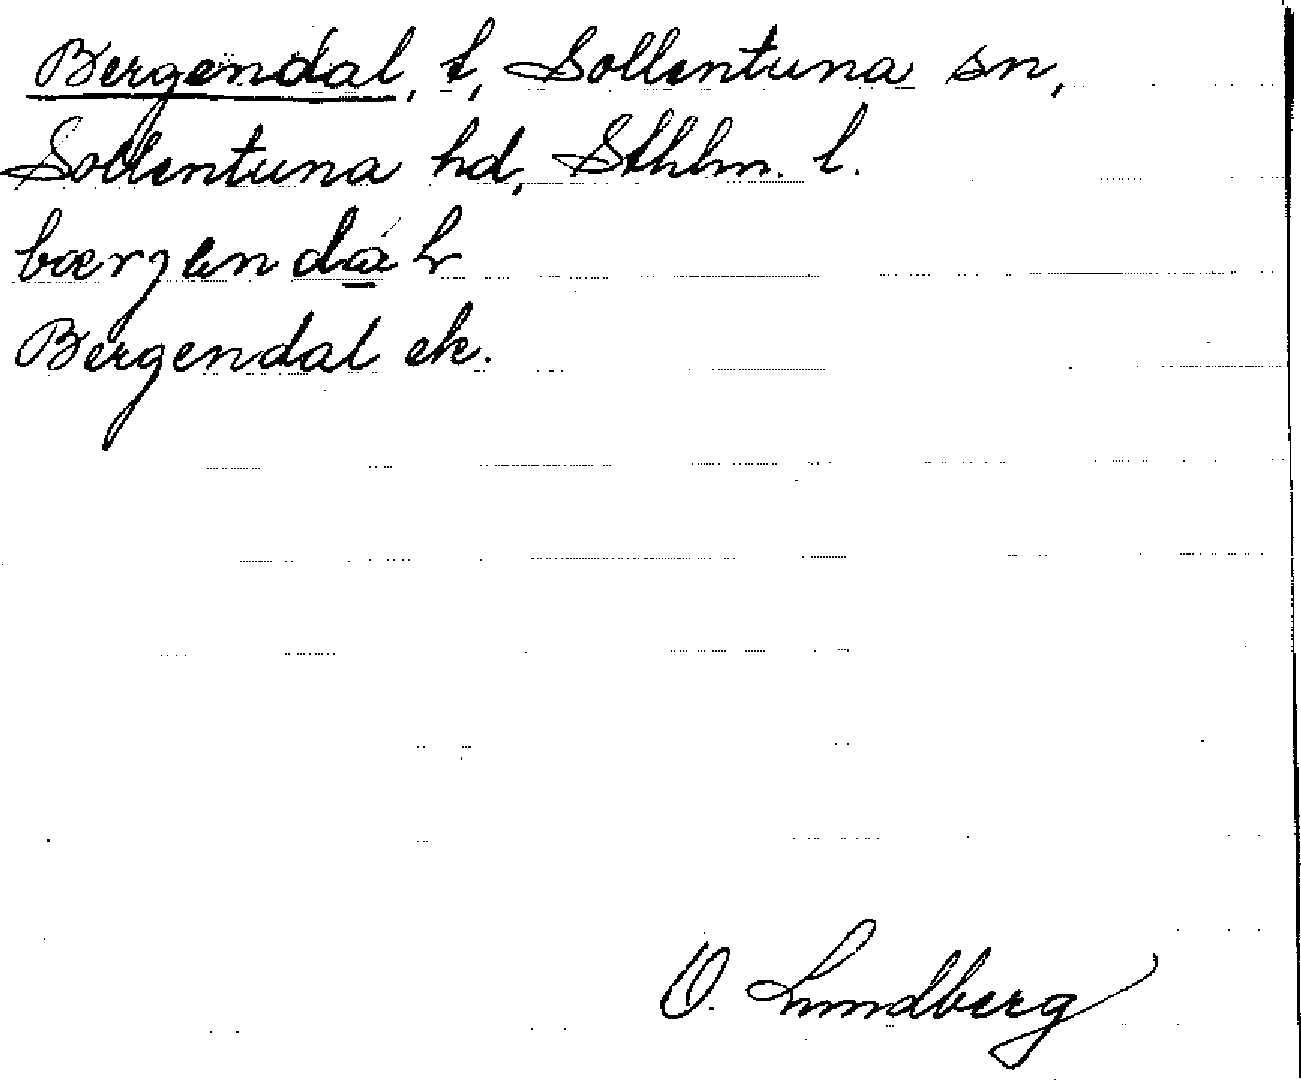 Bergendal, t, Sollentuna sn,
Sollentuna hd, Sthlm. l.
Bergendal ek.
O. Lundberg